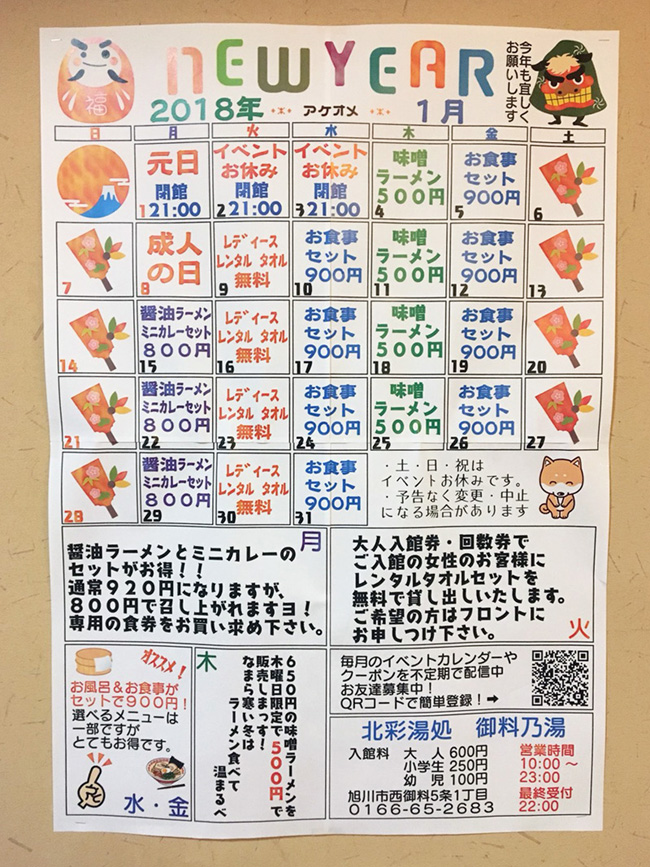 福
NEW YEAR
今年も宜しく
お願いします
2018年 アケオメ 1月
日 月 火 水 木 金 土
元日
閉館
21:00
1
イベント
お休み
閉館
21:00
2
イベント
お休み
閉館
21:00
3
味噌
ラーメン
500円
4
お食事
セット
900円
5
6
7
成人
の日
8
レディース
レンタル タオル
無料
9
お食事
セット
900円
10
味噌
ラーメン
500円
11
お食事
セット
900円
12
13
14
醤油ラーメン
ミニカレーセット
800円
15
レディース
レンタル タオル
無料
16
お食事
セット
900円
17
味噌
ラーメン
500円
18
お食事
セット
900円
19
20
21
醤油ラーメン
ミニカレーセット
800円
22
レディース
レンタル タオル
無料
23
お食事
セット
900円
24
味噌
ラーメン
500円
25
お食事
セット
900円
26
27
28
醤油ラーメン
ミニカレーセット
800円
29
レディース
レンタル タオル
無料
30
お食事
セット
900円
31
・土・日・祝は
イベントお休みです。
・予告なく変更・中止
になる場合があります
月
醤油ラーメンとミニカレーの
セットがお得！！
通常920円になりますが、
800円で召し上がれますヨ！
専用の食券をお買い求め下さい。
大人入館券・回数券で
ご入館の女性のお客様に
レンタルタオルセットを
無料で貸し出しいたします。
ご希望の方はフロントに
お申しつけ下さい。
火
オススメ！
お風呂＆お食事が
セットで900円！
選べるメニューは
一部ですが
とてもお得です。
水・金
木
650円の味噌ラーメンを
木曜日限定で500円で
販売しまっす！
なまら寒い冬は
ラーメン食べて
温まるべ
毎月のイベントカレンダーや
クーポンを不定期で配信中
お友達募集中！
QRコードで簡単登録！➡
北彩湯処 御料乃湯
入館料 大人 600円
小学生 250円
幼児 100円
営業時間
10:00～
23:00
最終受付
22:00
旭川市西御料5条1丁目
0166-65-2683